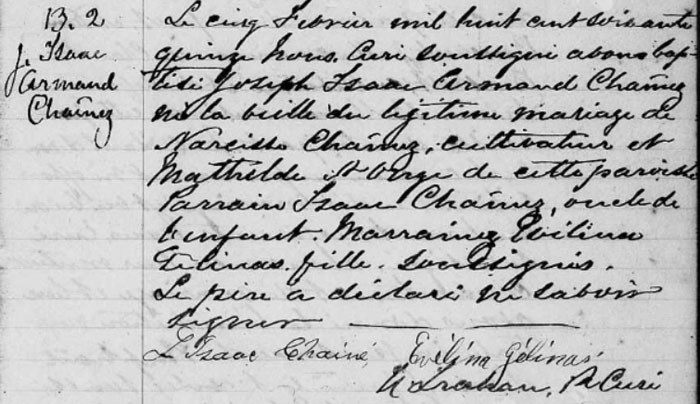 B. 2
J. Isaac
Armand
Chaînez
Le cinq Février mil huit cent soixante
quinze Nous Curé soussigné avons bap-
tisé Joseph Isaac Armand Chaînez
né la veille du légitime mariage de
Narcisse Chaînez, cultivateur et
Mathilde St Onge de cette paroisse
Parrain Isaac Chaînez, oncle de
l'enfant. Marraine Evélina
Gélinas fille soussignés.
Le père a déclaré ne savoir
signer
Isaac Chainé Evélina Gélinas
Ptre Curé